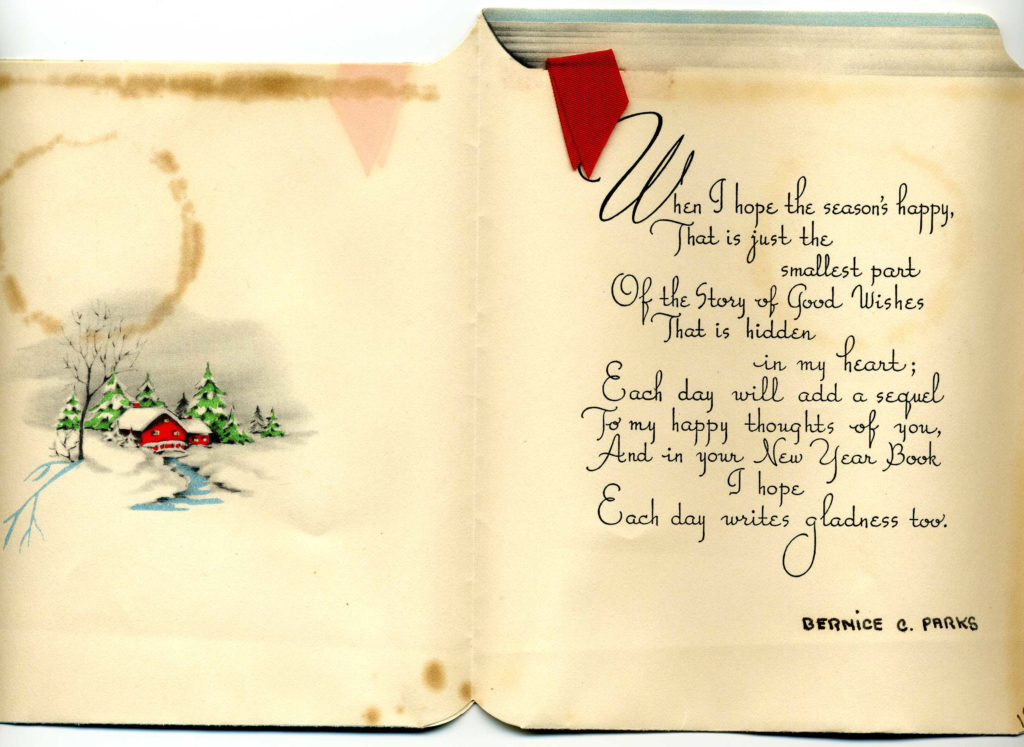 When I hope the season's happy,
That is just the
smallest part
Of the Story of Good Wishes
That is hidden
in my heart;
Each day will add a sequel
To my happy thoughts of you,
And in your New Year Book
I hope
Each day writes gladness too.
BERNICE C. PARKS